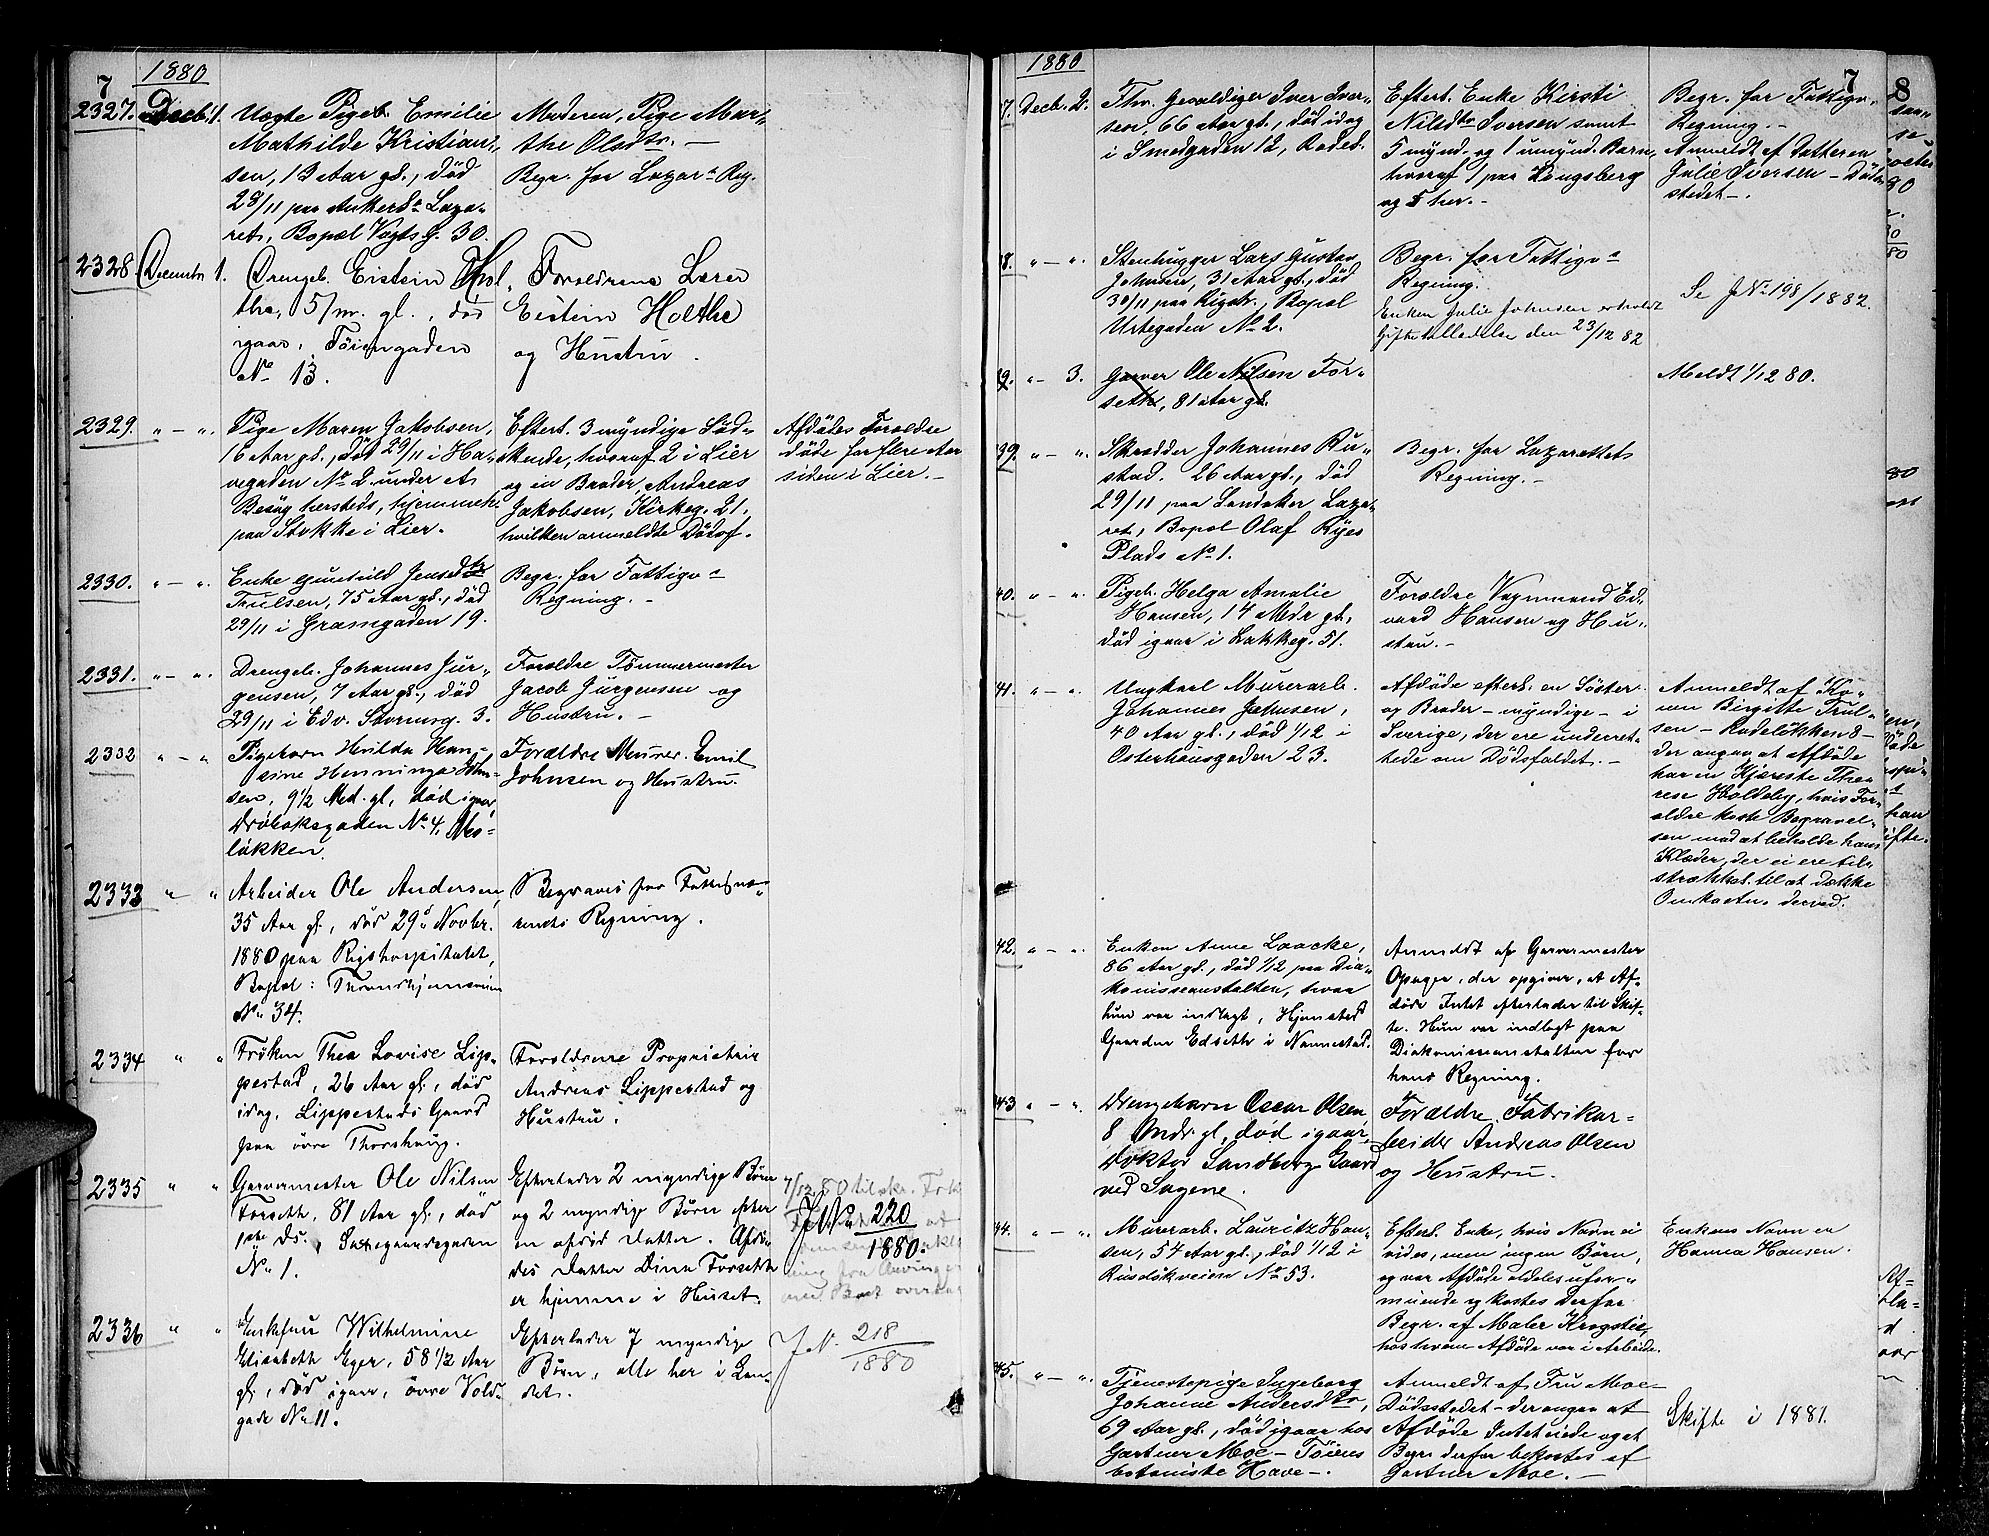 7
1880
2327. Decbr 1. Uægte Pigeb. Emilie
Mathilde Kristian-
sen, 13 Aar gl., död
28/11 paa Ankerls Laza-
ret, Bopæl Vogts G. 30.
Moderen, Pige Mar-
the Olsdtr. —
Begr. for Lazar. Reg.
2328. Decembr 1. Drengeb. Eistein Hol,
the, 5/m. gl., död
igaar, Töiengaden
No 13.
Forældrene Lærer
Eistein Holthe
og Hustru.
2329. " — ". Pige Maren Jakobsen,
16 Aar gl., död 29/11 i Ha-
vegaden No 2 under et
Besøg hersteds, hjemmeh.
paa Stokke i Lier.
Eftert. 3 myndige Söd-
skende, hvoraf 2 i Lier
og en Broder, Andreas
Jakobsen, Kirkeg. 21,
hvilken anmeldte Dödsf.
Afdödes Forældre
døde for flere Aar
siden i Lier. —
2330. " — ". Enke Gunhild Jensdtr
Trulsen, 75 Aar gl., död
29/11 i Grønsgaden 19.
Begr. for Fattigv.
Regning. —
2331. " — ". Drengeb. Johannes Jür-
gensen, 7 Aar gl., död
29/11 i Edv. Stormsg. 3.
Forældre Tømmermester
Jacob Jürgensen og
Hustru. —
2332 " — " Pigebarn Hvilda Han-
sine Henninga John-
sen, 9 1/2 Md. gl, död igaar
Dröbaksgaden No 4,
lökken.
Forældre Murer. Emil
Johnsen og Hustru.
2333 " " Arbeider Ole Andersen,
35 Aar gl., död 29de Novbr.
1880 paa Rigshospitalet,
Bopæl: Throndhjemsveien
No 34.
Begraves for Fattigvæ-
senets Regning.
2334 " " Fröken Thea Lovise Lip-
pestad, 26 Aar gl., död
idag, Lippestads Gaard
paa övre Thorshaug.
Forældrene Proprietair
Andreas Lippestad og
Hustru.
2335 " " Garvermester Ole Nilsen
Forseth, 81 Aar gl., död
1ste ds., gaden
No 1.
Efterlader 2 myndige Börn
og 2 myndige Börn efter
en afdöd Datter. Afdö-
des Datter Dina Forseth
er hjemme i Huset.
7/12 80 til skr.
J No 220
1880.
2336 " " Enkefru Wilhelmine
Elisabeth Eger, 58 1/2 Aar
gl., död igaar, övre Vold-
gade No 11.
Efterlader 7 myndige
Börn, alle her i Lan-
det.
J N. 218
1880
1880
7
8
7. Decb. 2. Fhv. Gevaldiger Iver Iver-
sen, 66 Aar gl., död idag
i Smedgaden 12, Rodel.
Eftert. Enke Kirsti
Nilsdtr Iversen samt
5 mynd. og 1 umynd. Barn,
hvoraf 1 paa Kongsberg
og 5 her. —
Begr. for Fattigv.
Regning. —
Anmeldt af Datteren
Julie Iversen — Döds-
stedet —.
8. " — ". Stenhugger Lars Gustav
Johnsen, 31 Aar gl., död
30/11 paa Rigsh., Bopæl
Urtegaden No 2.
Begr. for Fattigv.
Regning.
Enken Julie Johnsen erholdt
Giftetilladelse den 23/12 82
Se J No 198/1882.
39. " — 3. Garver Ole Nilsen For-
seth, 81 Aar gl.
Meldt 1/12 80.
39. " — ". Skrædder Johannes Ru-
stad. 26 Aar gl., död
29/11 paa Sandaker Laza-
ret, Bopæl Olaf Ryes
Plads No 1.
Begr. for Lazarettets
Regning. —
40. " — ". Pigeb. Helga Amalie
Hansen, 14 Mdr gl.,
död igaar i Lakkeg. 51.
Forældre Vognmand Ed-
vard Hansen og Hu-
stru. —
41. " — ". Ungkarl Murerarb.
Johannes Johnsen,
40 Aar gl., död 1/12 i
Osterhausgaden 23.
Afdöde efterl. en Söster
og Broder — myndige — i
Sverige, der ere underret-
tede om Dödsfaldet. —
Anmeldt af Ko-
nen Birgitte Trul-
sen — Rodelökken 8 —
der angav at Afdöde
har en Kjæreste The-
rese Holdeby, hvis For-
ældre koste Begravel-
sen mod at beholde hans
Klæder, der ei ere til-
strækkel. til at dække
Omkostns. derved.
42. " — ". Enken Anne Laacke,
86 Aar gl., död 1/12 paa Dia-
konisseanstalten, hvor
hun var indlagt, Hjemsted
Gaarden Edseth i Nannestad.
Anmeldt af Garvermester
Opager, der opgiver, at Af-
döde Intet efterlader til Skif-
te. Hun var indlagt paa
Diakonissanstalten for
hans Regning.
43 " — ". Drengebarn Oscar Olsen
8 Mdr. gl, död igaar,
Doktor Sandbergs Gaard
ved Sagene.
Forældre Fabrikar-
beider Andreas Olsen
og Hustru.
44. " — ". Murerarb. Lauritz Han-
sen, 54 Aar gl., död 1/12 i
Rusdökveien No 53.
Efterl. Enke, hvis Navn ei
vides, men ingen Børn,
og var Afdöde aldeles ufor-
muende og kostes derfor
Begr. af Maler Krogstie,
hos hvem Afdöde var i Arbeide.
Enkens Navn er
Hanna Hansen.
45. " — ". Tjenestepige Ingeborg
Johanne Andersdtr,
69 Aar gl., död igaar hos
Gartner Moe — Töiens
botaniske Have —.
Anmeldt af Fru Moe —
Dödsstedet — der angav at
Afdöde Intet eiede og at
Begr. derfor bekostes af
Gartner Moe. —
Skifte i 1881.